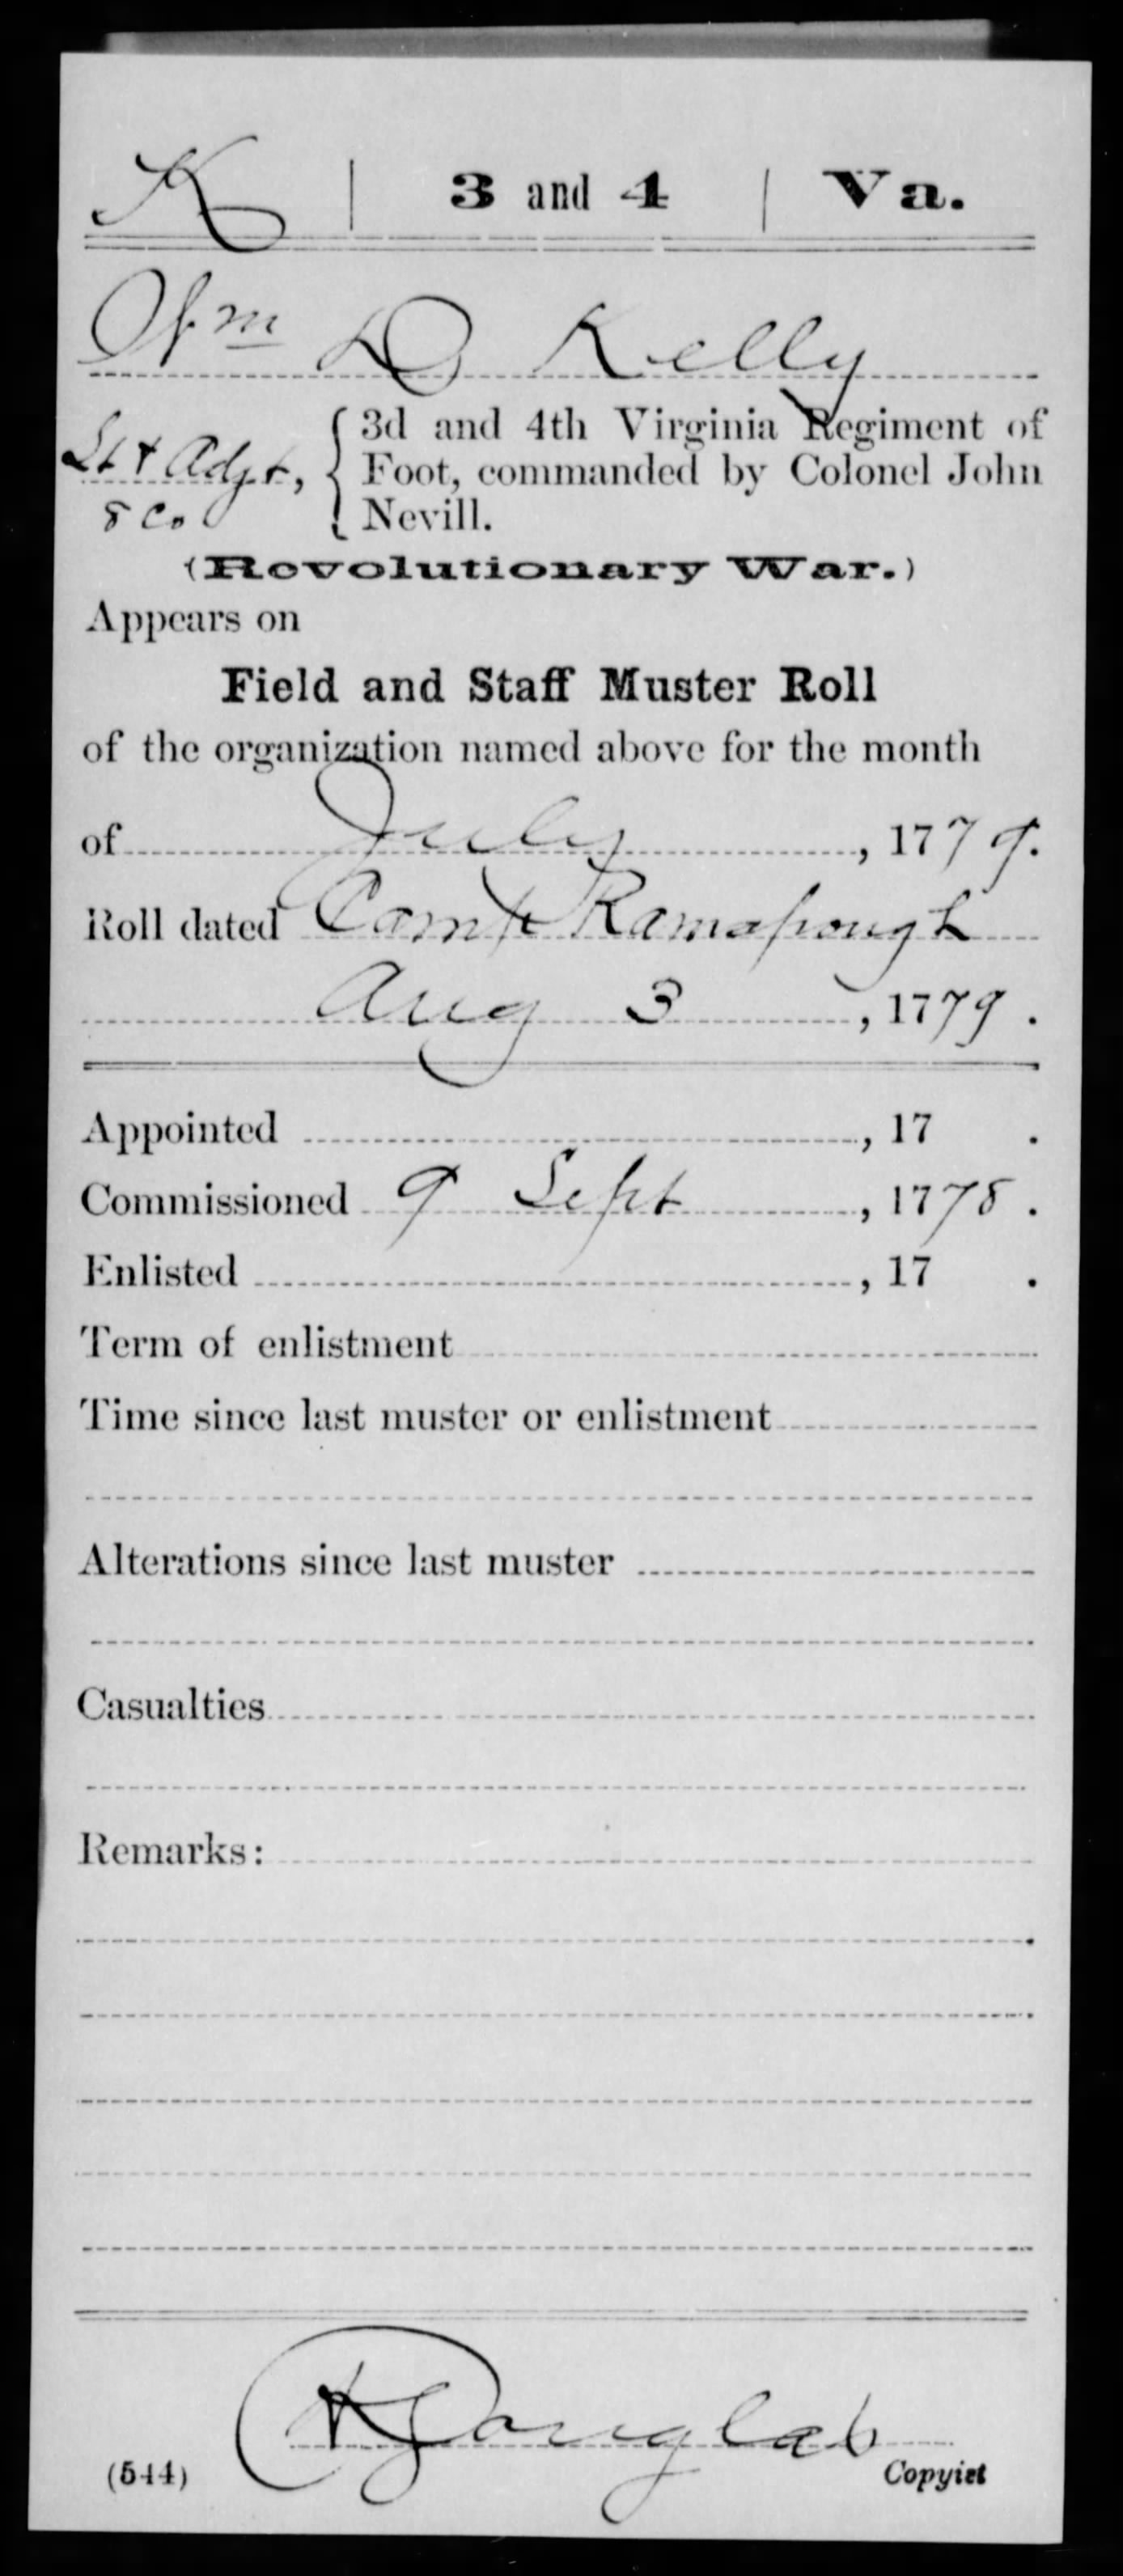 K | 3 and 4 | Va.
Wm D Kelly
Lt & Adjt,
8 Co
3d and 4th Virginia Regiment of
Foot, commanded by Colonel John
Nevill.
(Revolutionary War.)
Appears on
Field and Staff Muster Roll
of the organization named above for the month
of July, 1779.
Roll dated Camp Ramapough
Aug 3, 1779.
Appointed , 17 .
Commissioned 9 Sept, 1778.
Enlisted , 17 .
Term of enlistment
Time since last muster or enlistment
Alterations since last muster
Casualties
Remarks:
Douglas
(544) Copyist